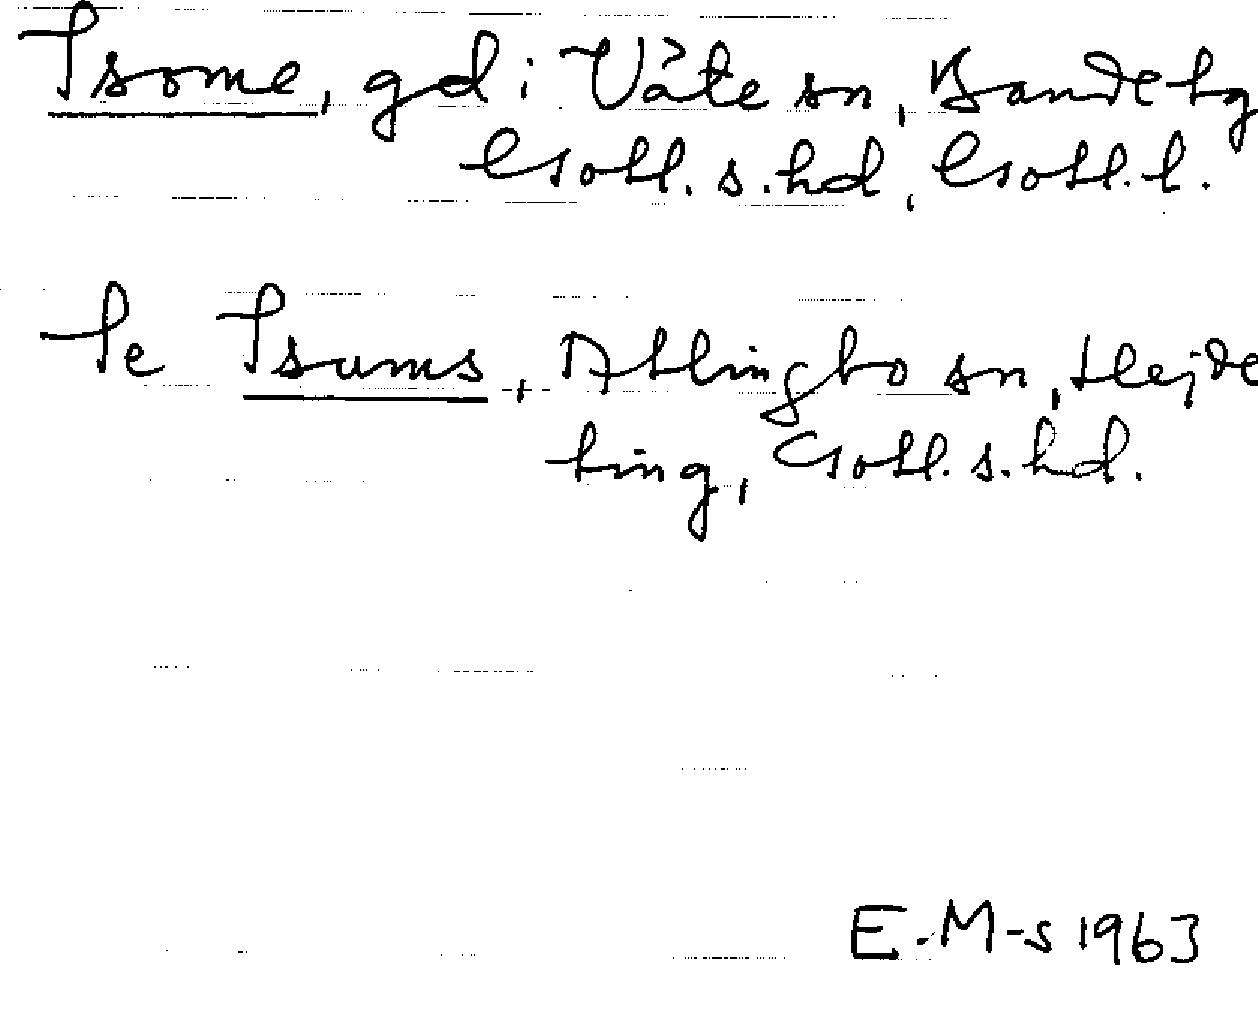 Isome, gd i Väte sn, Bande tg
Gotl. s. hd, Gotl. l.
Se Isums, Atlingbo sn, Hejde
ting, Gotl. s. hd.
E. M-s 1963